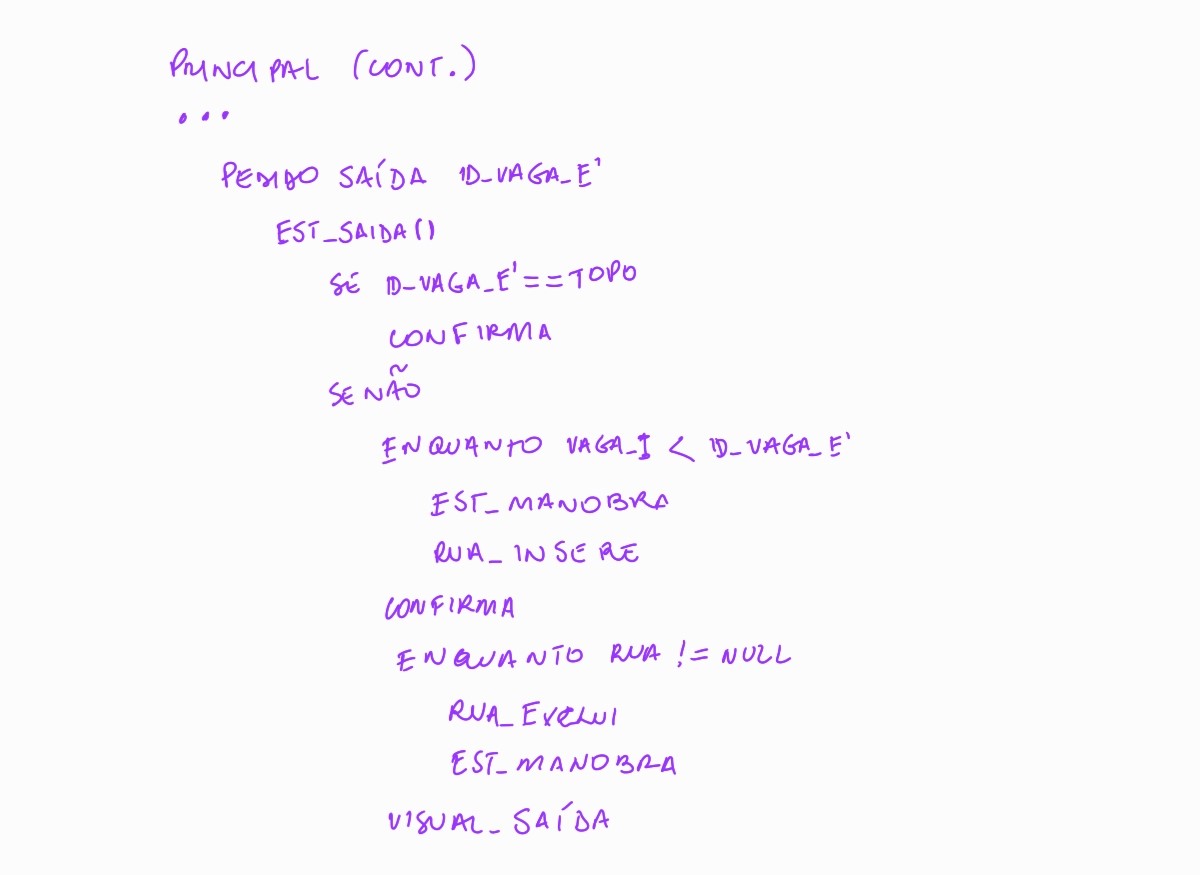 PRINCIPAL (CONT.)
...
PEDIDO SAÍDA ID_VAGA_E'
EST_SAIDA()
SE ID_VAGA_E'==TOPO
CONFIRMA
SENÃO
ENQUANTO VAGA_I < ID_VAGA_E'
EST_MANOBRA
RUA_INSERE
CONFIRMA
ENQUANTO RUA != NULL
RUA_EXCLUI
EST_MANOBRA
VISUAL_SAÍDA